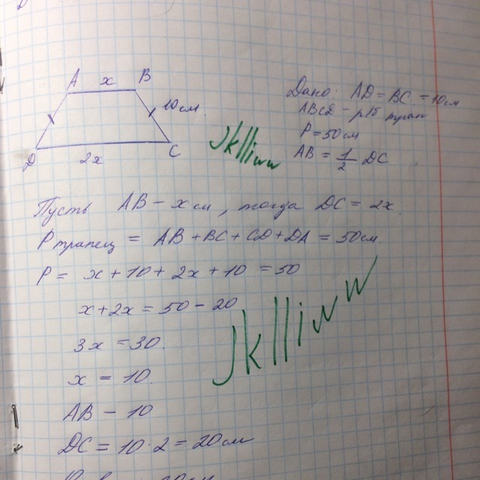 A x B
10см
D 2x C
Дано: AD = BC = 10см
ABCD - р/б трап
P = 50см
AB = 1/2 DC
Jklliww
Пусть AB - x см, тогда DC = 2x.
P трапец = AB + BC + CD + DA = 50см
P = x + 10 + 2x + 10 = 50
x + 2x = 50 - 20
3x = 30.
x = 10.
Jklliww
AB - 10
DC = 10 · 2 = 20см